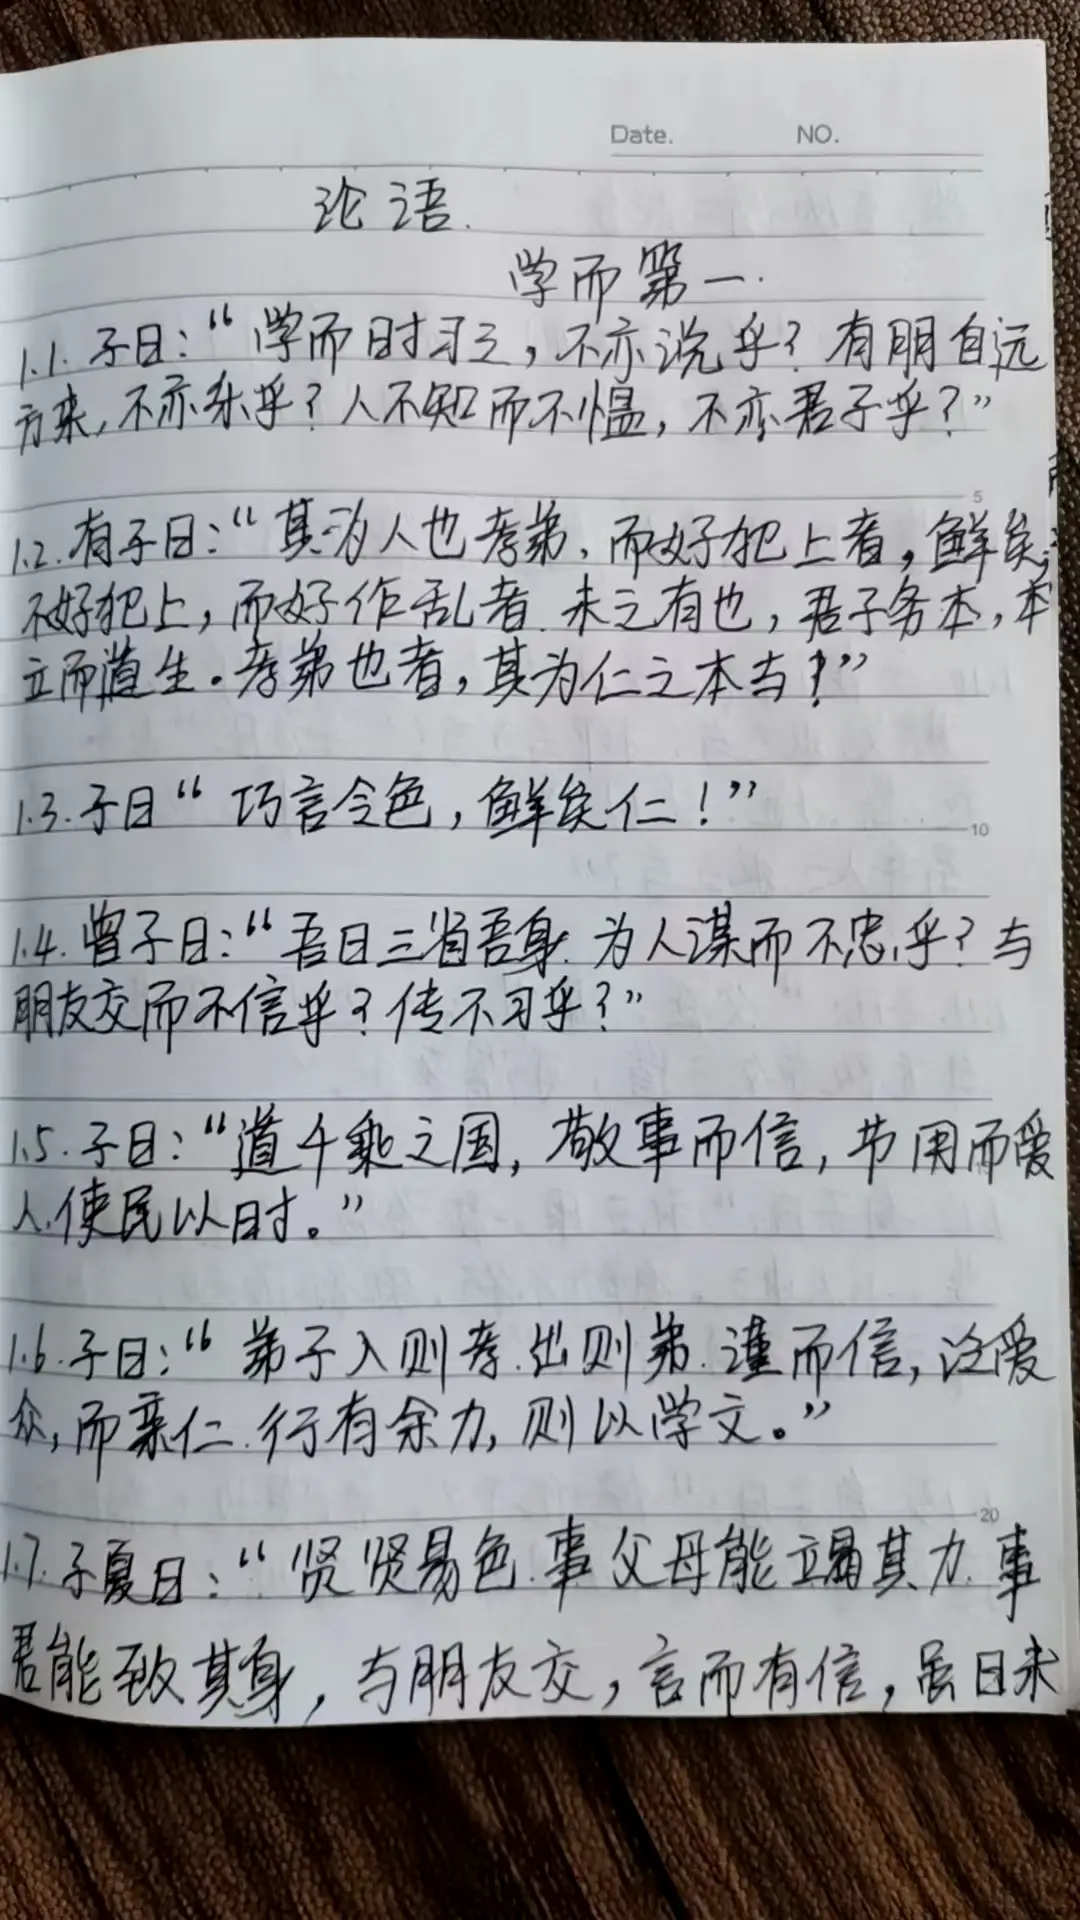 Date. NO.
论语.
学而第一.
1.1. 子曰：“学而时习之，不亦说乎？有朋自远
方来，不亦乐乎？人不知而不愠，不亦君子乎？”
5
1.2. 有子曰：“其为人也孝弟、而好犯上者，鲜矣；
不好犯上，而好作乱者.未之有也，君子务本，本
立而道生。孝弟也者，其为仁之本与！”
1.3. 子曰“巧言令色，鲜矣仁！”
10
1.4. 曾子曰：“吾日三省吾身.为人谋而不忠乎？与
朋友交而不信乎？传不习乎？”
1.5. 子曰：“道千乘之国，敬事而信，节用而爱
人.使民以时。”
1.6. 子曰：“弟子入则孝.出则弟.谨而信，泛爱
众，而亲仁.行有余力，则以学文。”
20
1.7. 子夏曰：“贤贤易色.事父母能竭其力.事
君能致其身，与朋友交，言而有信，虽曰未